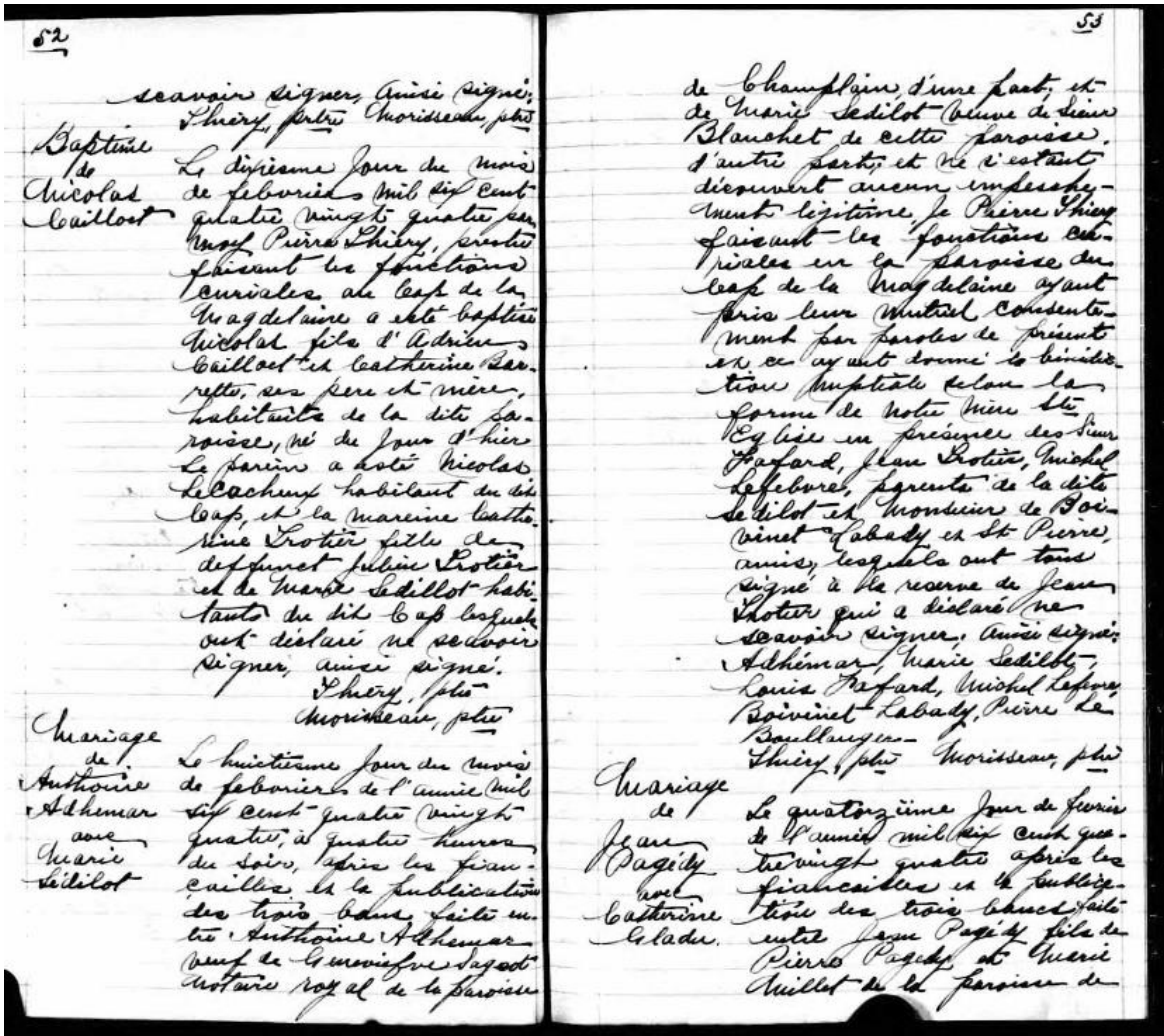 52
scavoir signer, ainsi signé:
Thiery, prtre Morisseau, ptre
Baptême
de
Nicolas
Cailloet
Le dixiesme jour du mois
de febvrier mil six cent
quatre vingt quatre par
moy Pierre Thiery, prestre
faisant les fonctions
curiales au Cap de la
Magdelaine a esté baptisé
Nicolas fils d'Adrien
Cailloet et Catherine Bar-
rette, ses pere et mère,
habitants de la dite pa-
roisse, né du jour d'hier
Le parein a esté Nicolas
LeCacheux habitant du dit
Cap, et la mareine Cathe-
rine Trotier fille de
deffunct Julien Trotier
et de Marie Sedillot habi-
tants du dit Cap lesquels
ont déclaré ne scavoir
signer, ainsi signé.
Thiery, ptre
Morisseau, ptre
Mariage
de
Anthoine
Adhemar
avec
Marie
Sédilot
Le huictiesme jour du mois
de febvrier de l'année mil
six cent quatre vingt
quatre, à quatre heures
du soir, après les fian-
cailles et la publication
des trois bans faite en-
tre Anthoine Adhemar
veuf de Geneviefve Sageot
Notaire royal de la paroisse
53
de Champlain d'une part, et
de Marie Sedilot veuve de Sieur
Blanchet de cette paroisse
d'autre part, et ne s'estant
découvert aucun empesche-
ment légitime, Je Pierre Thiery
faisant les fonctions cu-
riales en la paroisse du
Cap de la Magdelaine ayant
pris leur mutuel consente-
ment par paroles de présent
et ce ayant donné la bénédic-
tion nuptiale selon la
forme de notre mère Ste
Eglise en présence des Sieur
Fafard, Jean Trotier, Michel
Lefebvre, parents de la dite
Sedilot et Monsieur de Boi-
vinet Labady et St Pierre,
amis, lesquels ont tous
signé à la reserve de Jean
Trotier qui a déclaré ne
scavoir signer. Ainsi signé:
Adhémar, Marie Sedilot,
Louis Fafard, Michel Lefevre,
Boivinet Labady, Pierre Le
Boullanger-
Thiery, ptre Morisseau, ptre
Mariage
de
Jean
Pagédy
avec
Catherine
Gladu.
Le quatorzième jour de février
de l'année mil six cent qua-
tre vingt quatre après les
fiancailles et la publica-
tion des trois bancs faite
entre Jean Pagédy fils de
Pierre Pagédy et Marie
Millet de la paroisse de